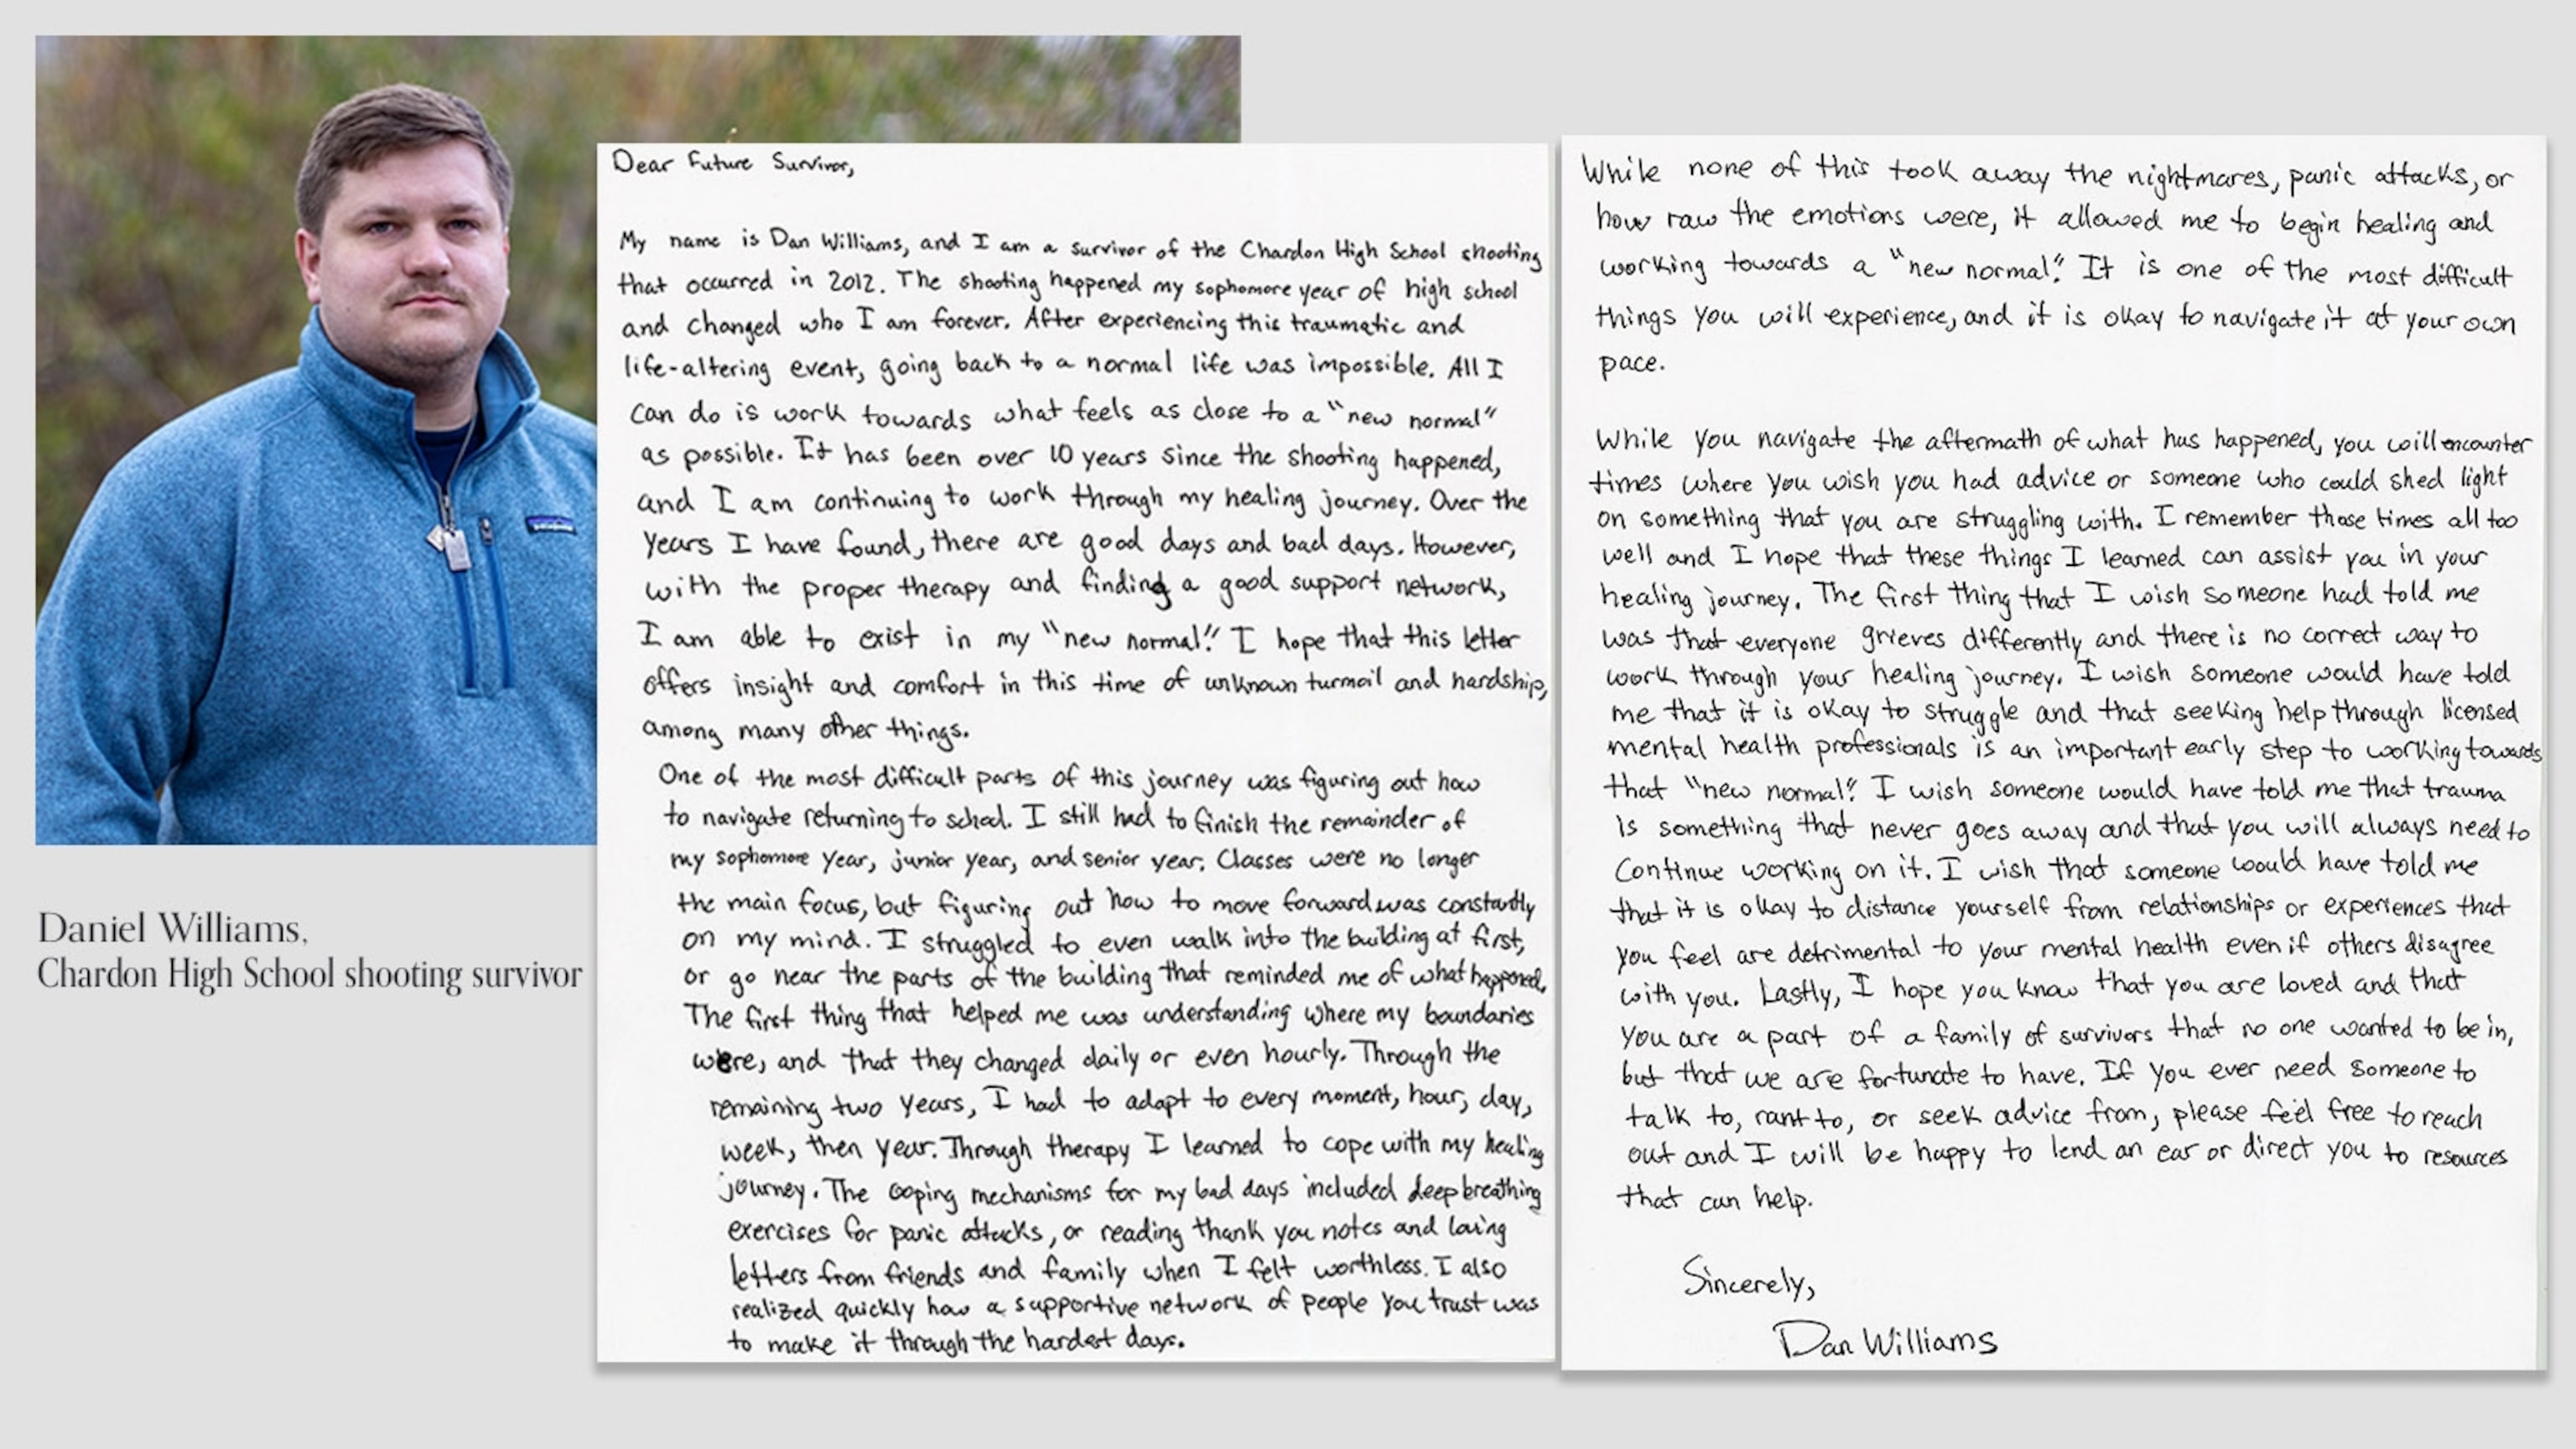 Dear Future Survivor,
My name is Dan Williams, and I am a survivor of the Chardon High School shooting
that occurred in 2012. The shooting happened my sophomore year of high school
and changed who I am forever. After experiencing this traumatic and
life-altering event, going back to a normal life was impossible. All I
can do is work towards what feels as close to a "new normal"
as possible. It has been over 10 years since the shooting happened,
and I am continuing to work through my healing journey. Over the
years I have found, there are good days and bad days. However,
with the proper therapy and finding a good support network,
I am able to exist in my "new normal." I hope that this letter
offers insight and comfort in this time of unknown turmoil and hardship,
among many other things.
One of the most difficult parts of this journey was figuring out how
to navigate returning to school. I still had to finish the remainder of
my sophomore year, junior year, and senior year. Classes were no longer
the main focus, but figuring out how to move forward was constantly
on my mind. I struggled to even walk into the building at first,
or go near the parts of the building that reminded me of what happened.
The first thing that helped me was understanding where my boundaries
were, and that they changed daily or even hourly. Through the
remaining two years, I had to adapt to every moment, hour, day,
week, then year. Through therapy I learned to cope with my healing
journey. The coping mechanisms for my bad days included deep breathing
exercises for panic attacks, or reading thank you notes and loving
letters from friends and family when I felt worthless. I also
realized quickly how a supportive network of people you trust was
to make it through the hardest days.
While none of this took away the nightmares, panic attacks, or
how raw the emotions were, it allowed me to begin healing and
working towards a "new normal." It is one of the most difficult
things you will experience, and it is okay to navigate it at your own
pace.
While you navigate the aftermath of what has happened, you will encounter
times where you wish you had advice or someone who could shed light
on something that you are struggling with. I remember those times all too
well and I hope that these things I learned can assist you in your
healing journey. The first thing that I wish someone had told me
was that everyone grieves differently and there is no correct way to
work through your healing journey. I wish someone would have told
me that it is okay to struggle and that seeking help through licensed
mental health professionals is an important early step to working towards
that "new normal." I wish someone would have told me that trauma
is something that never goes away and that you will always need to
continue working on it. I wish that someone would have told me
that it is okay to distance yourself from relationships or experiences that
you feel are detrimental to your mental health even if others disagree
with you. Lastly, I hope you know that you are loved and that
you are a part of a family of survivors that no one wanted to be in,
but that we are fortunate to have. If you ever need someone to
talk to, rant to, or seek advice from, please feel free to reach
out and I will be happy to lend an ear or direct you to resources
that can help.
Sincerely,
Dan Williams
Daniel Williams,
Chardon High School shooting survivor